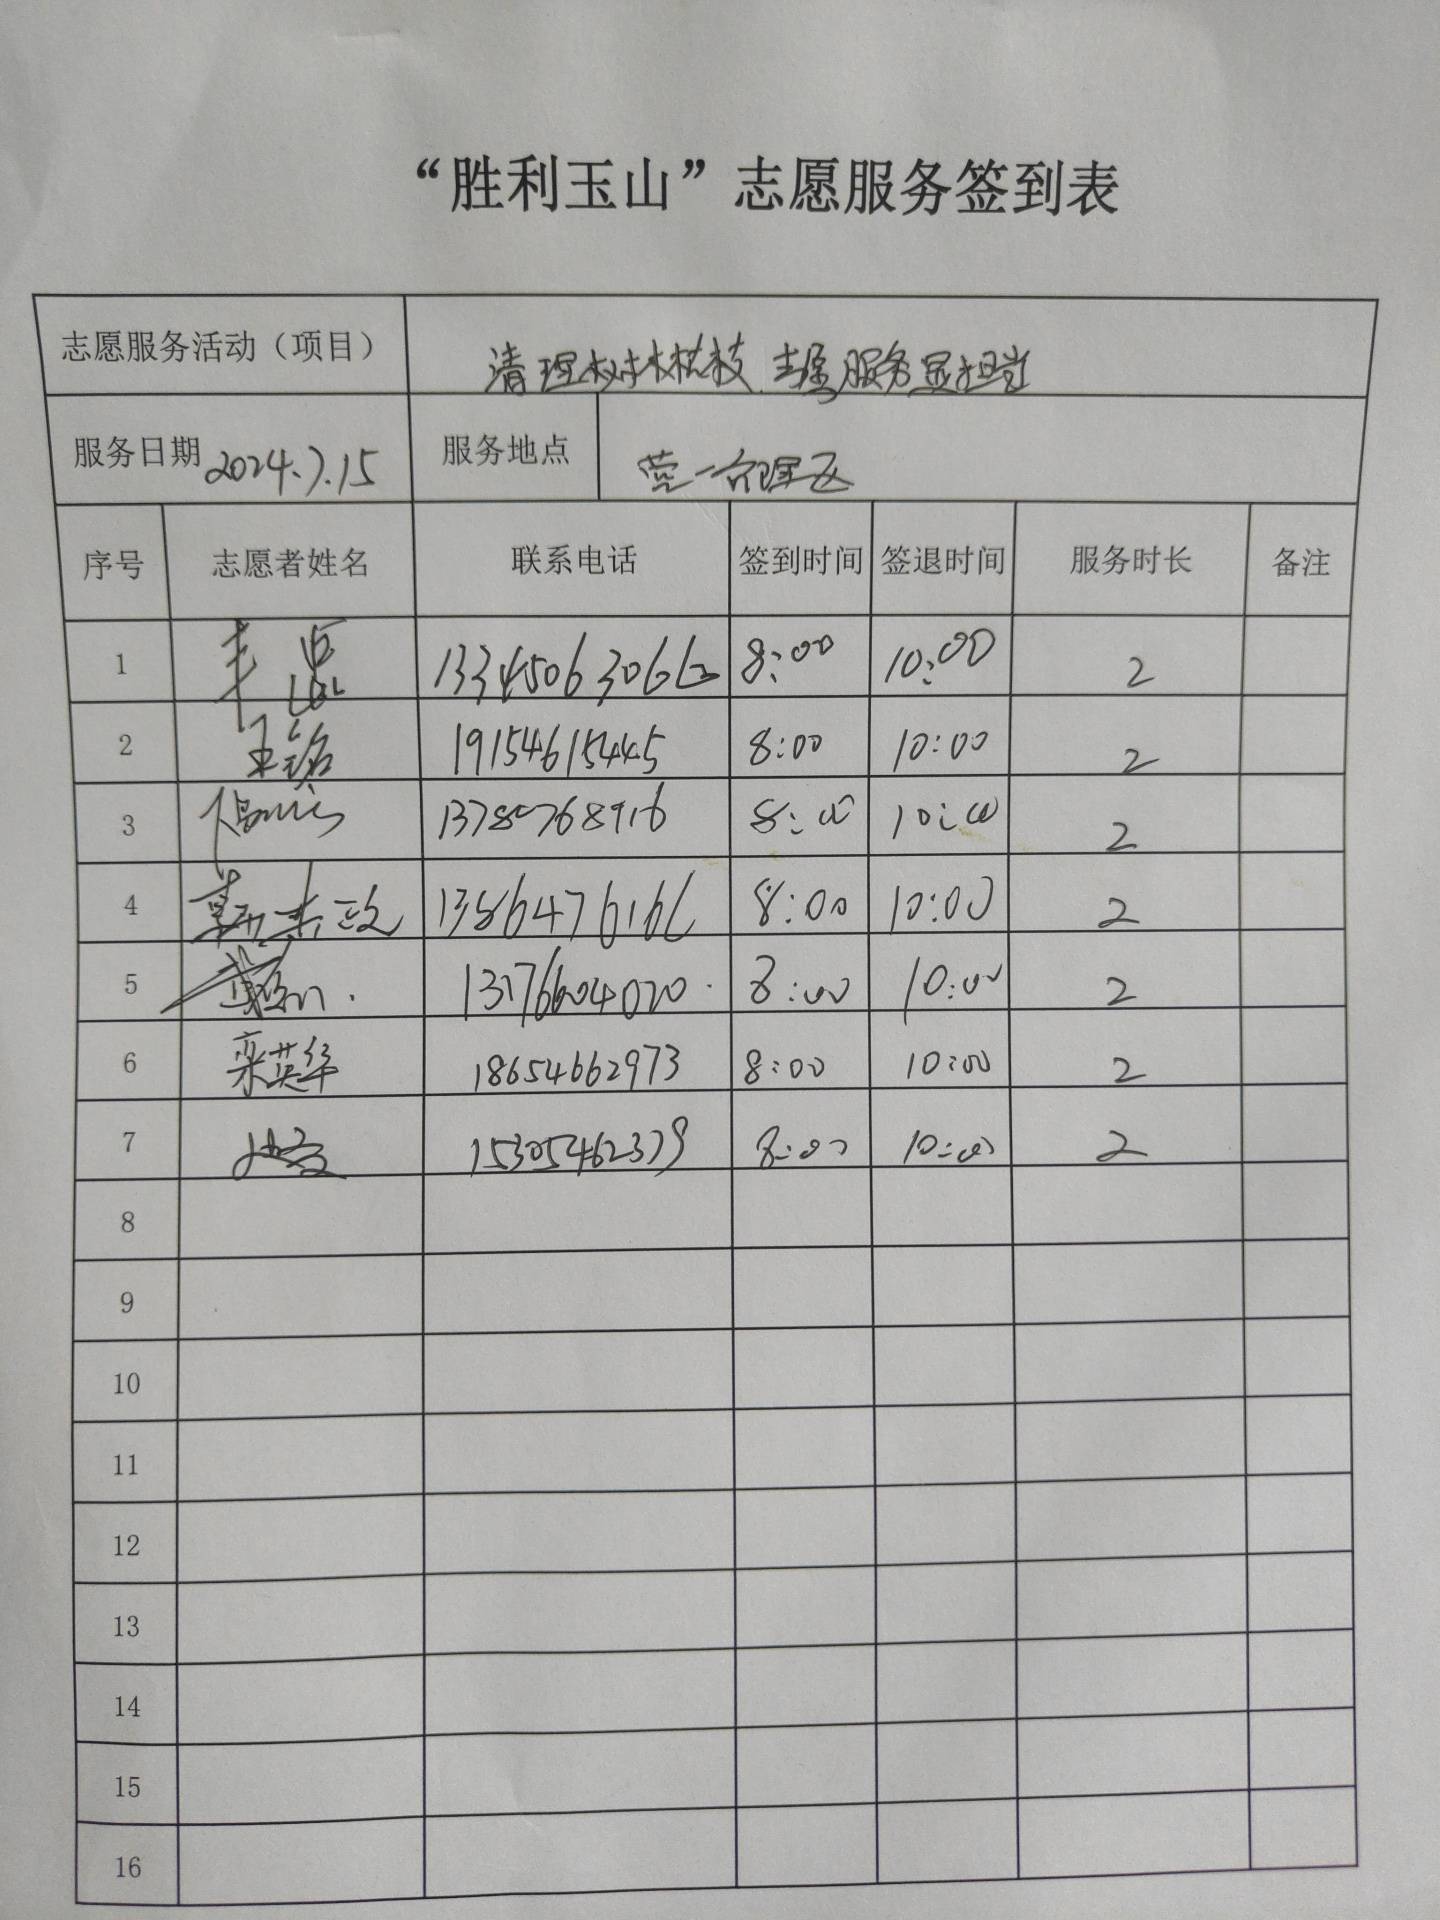 “胜利玉山”志愿服务签到表
志愿服务活动（项目） 清理树林枯枝 志愿服务显担当
服务日期 2024.7.15 服务地点 管理区
序号 志愿者姓名 联系电话 签到时间 签退时间 服务时长 备注
1 8:00 10:00 2
2 王铭 19154615445 8:00 10:00 2
3 8:00 10:00 2
4 8:00 10:00 2
5 8:00 10:00 2
6 栾英华 18654662973 8:00 10:00 2
7 15305462379 8:00 10:00 2
8
9
10
11
12
13
14
15
16